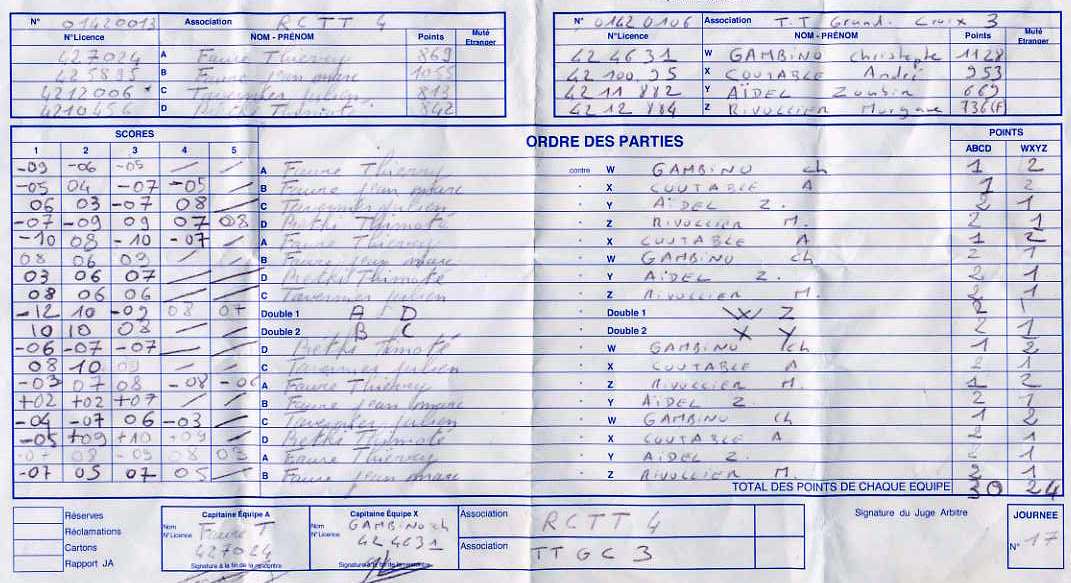 N° 01420013 Association RCTT 4
N°Licence NOM - PRÉNOM Points Muté Etranger
427024 A Faure Thierry 869
425895 B Faure Jean marc 1055
4212006 C Tavernier Julien 813
4210456 D Thimoté 842
N° 01420106 Association T.T Grand. Croix 3
N°Licence NOM - PRÉNOM Points Muté Etranger
42 4631 W GAMBINO christophe 1128
42 100.95 X COUTABLE André 953
42 11 882 Y AÏDEL Zoubir 669
42 12 884 Z RIVOLLIER Morgane 736(F)
SCORES ORDRE DES PARTIES POINTS
1 2 3 4 5 ABCD WXYZ
-09 -06 -05 / / A Faure Thierry contre W GAMBINO ch 1 2
-05 04 -07 -05 / B Faure Jean marc " X COUTABLE A 1 2
06 03 -07 08 / C Tavernier Julien " Y AÏDEL Z. 2 1
-07 -09 09 07 08 D Thimoté " Z RIVOLLIER M. 2 1
-10 08 -10 -07 / A Faure Thierry " X COUTABLE A 1 2
08 06 09 / / B Faure Jean marc " W GAMBINO ch 2 1
03 06 07 / / D Thimoté " Y AÏDEL Z. 2 1
08 06 06 / / C Tavernier Julien " Z RIVOLLIER M. 2 1
-12 10 -09 08 07 Double 1 A D " Double 1 W Z 2 1
10 10 08 / / Double 2 B C " Double 2 X Y 2 1
-06 -07 -07 / / D Timoté " W GAMBINO ch 1 2
08 10 09 / / C Tavernier Julien " X COUTABLE A 2 1
-03 07 08 -08 A Faure Thierry " Z RIVOLLIER M. 1 2
+02 +02 +07 / / B Faure Jean marc " Y AÏDEL Z. 2 1
-04 -07 06 -03 / C Tavernier Julien " W GAMBINO ch 1 2
-05 +09 +10 +09 / D Thimoté " X COUTABLE A 2 1
-07 08 -09 08 03 A Faure Thierry " Y AÏDEL Z. 2 1
-07 05 07 05 / B Faure Jean marc " Z RIVOLLIER M. 2 1
TOTAL DES POINTS DE CHAQUE EQUIPE 30 24
Réserves
Réclamations
Cartons
Rapport JA
Capitaine Équipe A
Nom Faure T
N°Licence 427024
Signature à la fin de la rencontre
Capitaine Équipe X
Nom GAMBINO ch
N°Licence 424631
Signature à la fin de la rencontre
Association RCTT 4
Association TTGC 3
Signature du Juge Arbitre
JOURNEE
N° 17